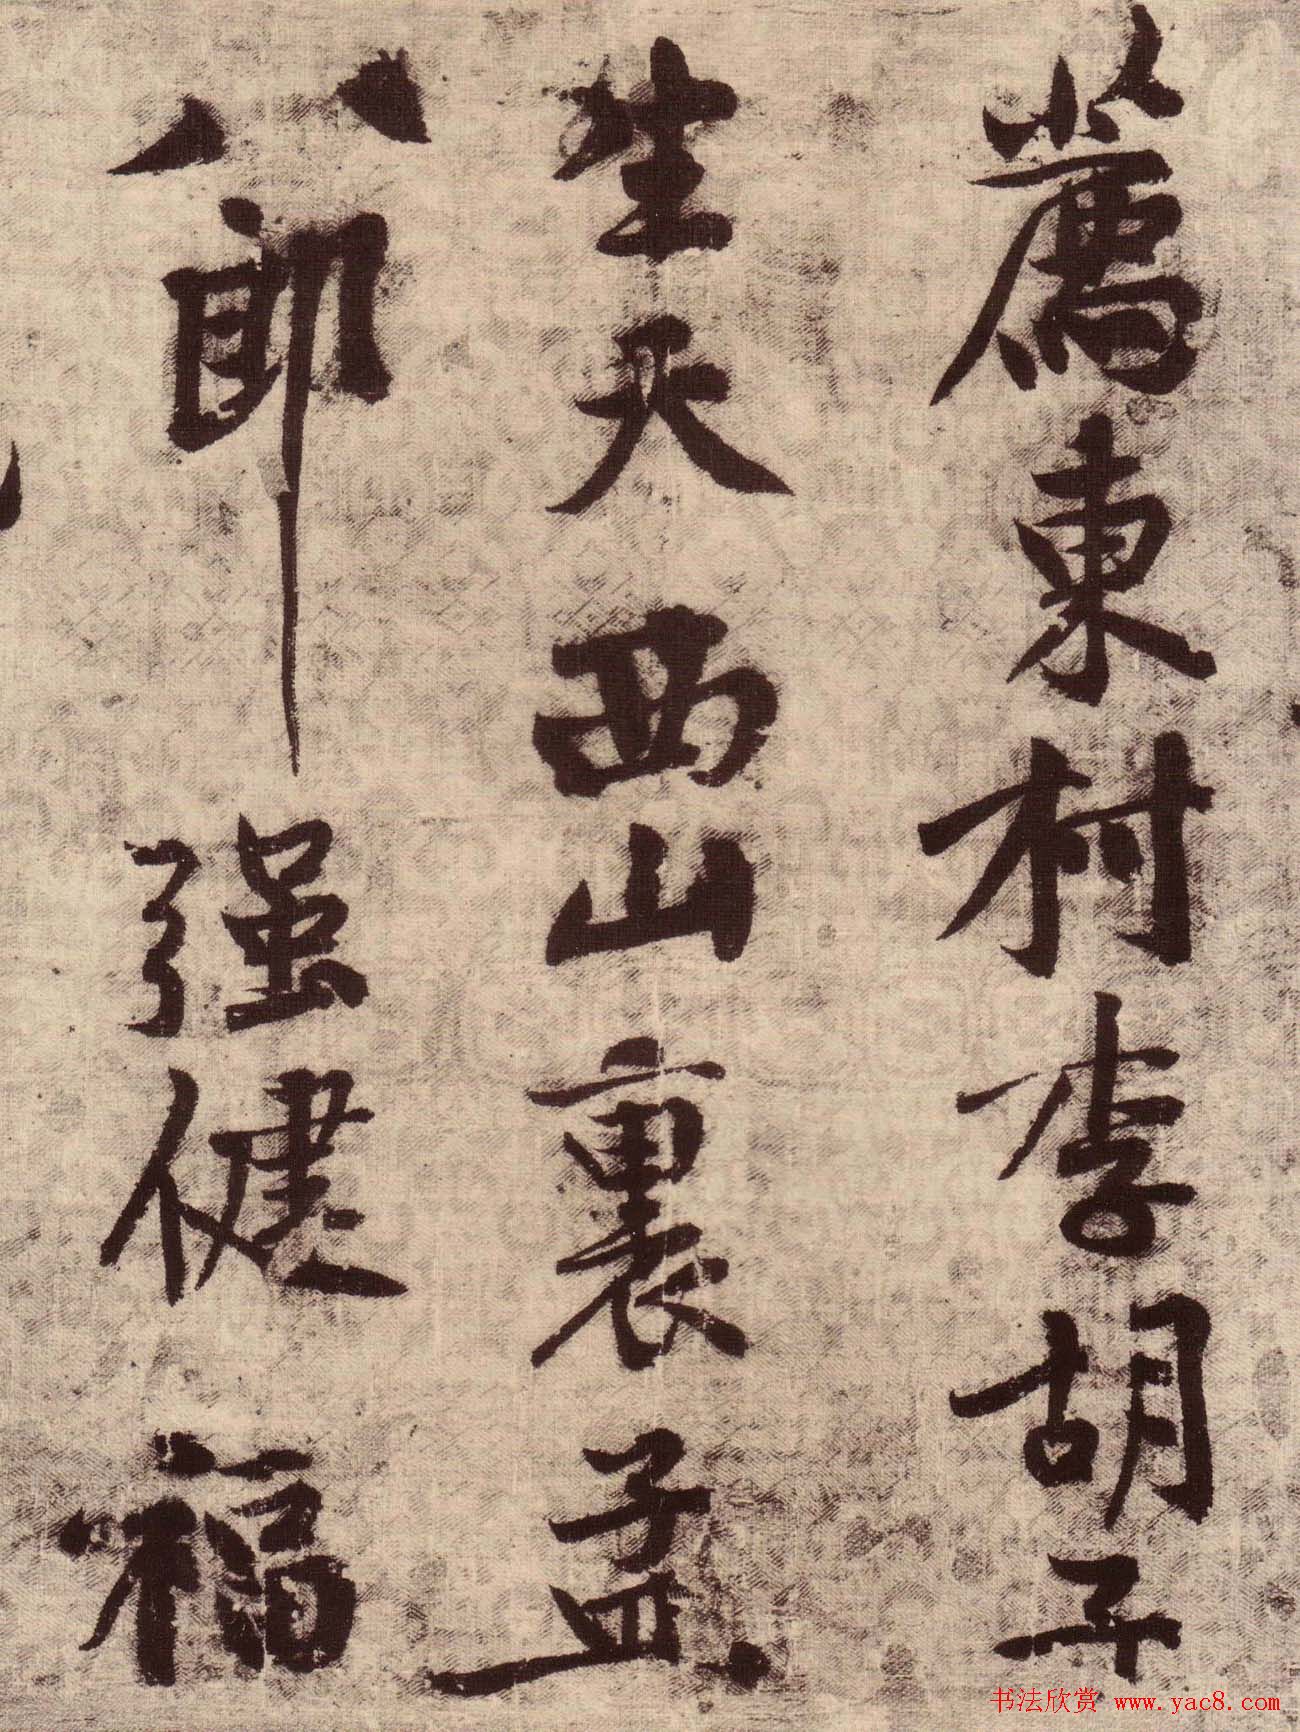 薦東村李胡子
生天西山裏孟
八郎强健福
书法欣赏 www.yac8.com